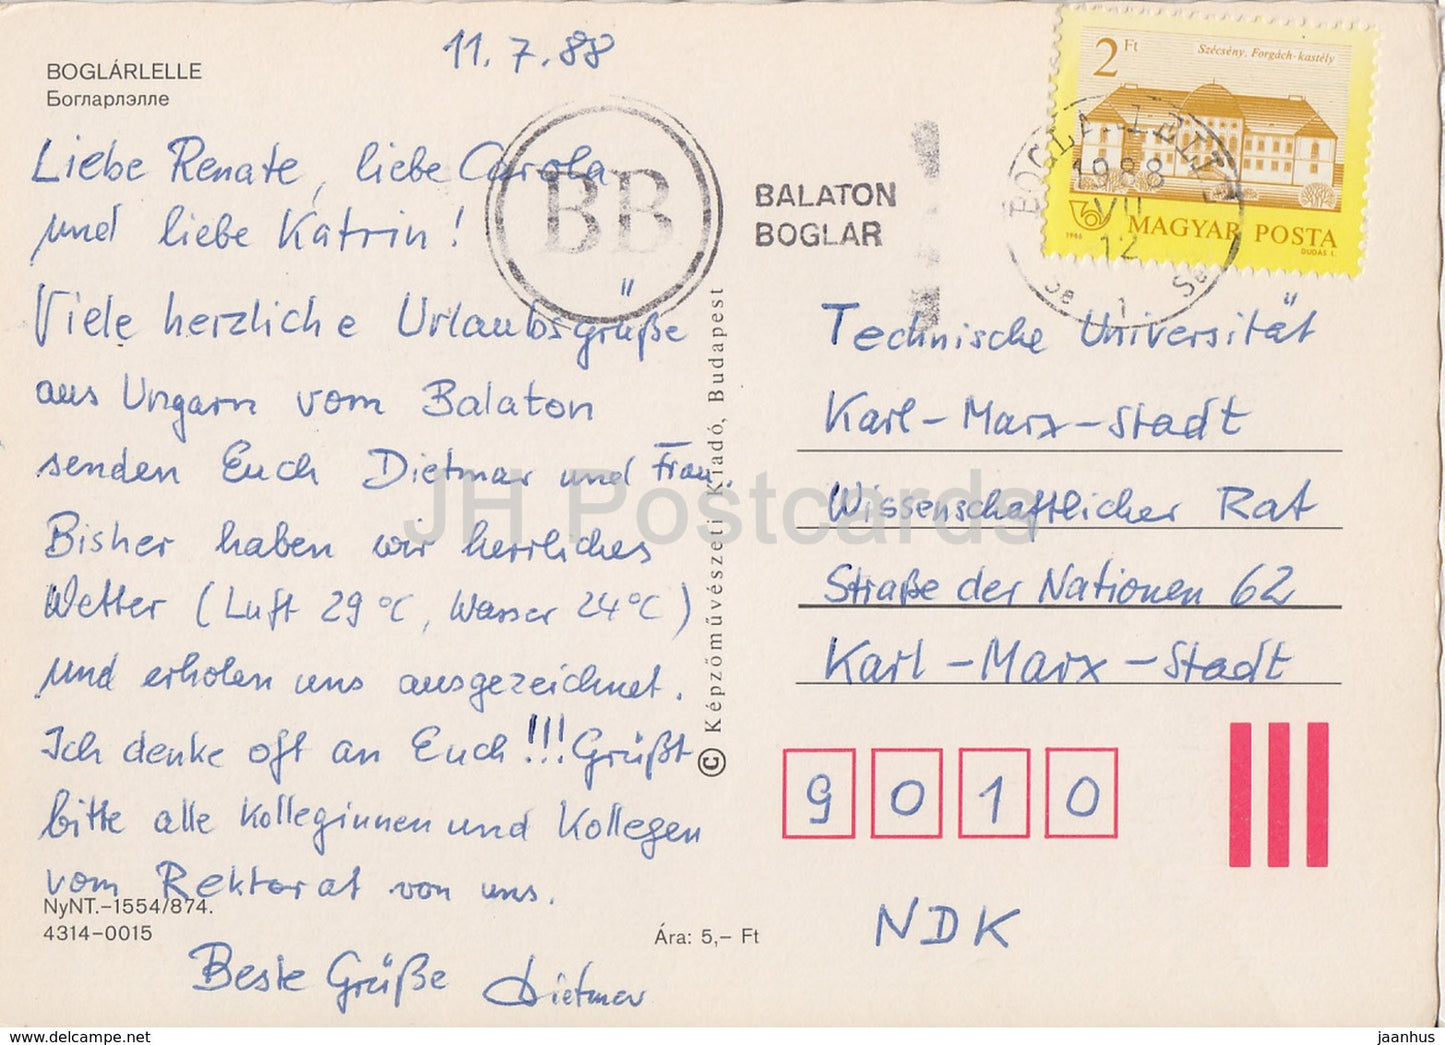 11.7.88
BOGLÁRLELLE
Богларлэлле
Liebe Renate, liebe Carola
und liebe Katrin!
Viele herzliche Urlaubsgrüße
aus Ungarn vom Balaton
senden Euch Dietmar und Frau.
Bisher haben wir herrliches
Wetter (Luft 29°C, Wasser 24°C)
und erholen uns ausgezeichnet.
Ich denke oft an Euch!!! Grüßt
bitte alle Kolleginnen und Kollegen
vom Rektorat von uns.
NyNT.–1554/874.
4314–0015
Beste Grüße Dietmar
Ára: 5,– Ft
© Képzőművészeti Kiadó, Budapest
BB
BALATON
BOGLAR
2 Ft
Szécsény. Forgách-kastély
MAGYAR POSTA
1986
DUDÁS L.
1988
VII
12
1
Technische Universität
Karl-Marx-Stadt
Wissenschaftlicher Rat
Straße der Nationen 62
Karl-Marx-Stadt
9010
NDK
JH Postcards
www.delcampe.net
jaanhus